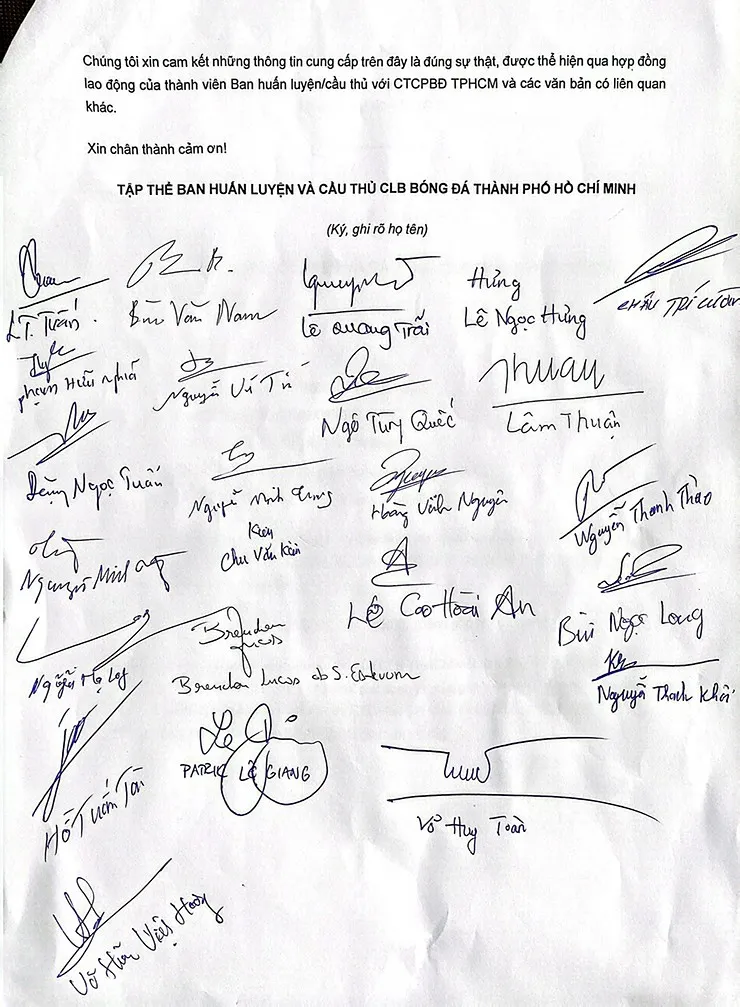 Chúng tôi xin cam kết những thông tin cung cấp trên đây là đúng sự thật, được thể hiện qua hợp đồng
lao động của thành viên Ban huấn luyện/cầu thủ với CTCPBĐ TPHCM và các văn bản có liên quan
khác.
Xin chân thành cảm ơn!
TẬP THỂ BAN HUẤN LUYỆN VÀ CẦU THỦ CLB BÓNG ĐÁ THÀNH PHỐ HỒ CHÍ MINH
(Ký, ghi rõ họ tên)
Hưng
L.T. Tuấn
Bùi Văn Nam
Lê Quang Trãi
Lê Ngọc Hưng
CHÂU TRÍ CƯỜNG
Phạm Hữu Nghĩa
Nguyễn Vĩ Tú
Ngô Tùng Quốc
Thuận
Lâm Thuận
Đặng Ngọc Tuấn
Nguyễn Minh Trung
Hoàng Vĩnh Nguyên
Nguyễn Thanh Thảo
Nguyễn Minh
Chu Văn Kiên
Lê Cao Hoài An
Bùi Ngọc Long
Brendon
Lucas
Brendon Lucas
Nguyễn Thanh Khôi
PATRIK LÊ GIANG
Hồ Tuấn Tài
Võ Huy Toàn
Võ Hữu Việt Hoàng